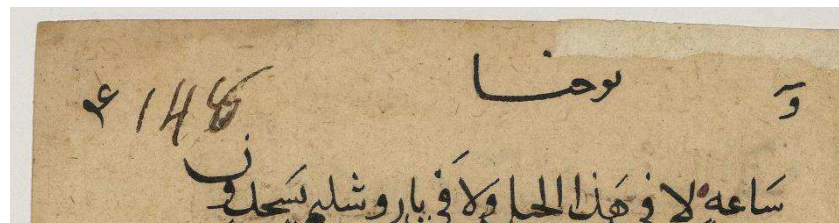 و يوحنا 148
ساعه لا فى هذا الجبل ولا فى ياروشليم يسجدون